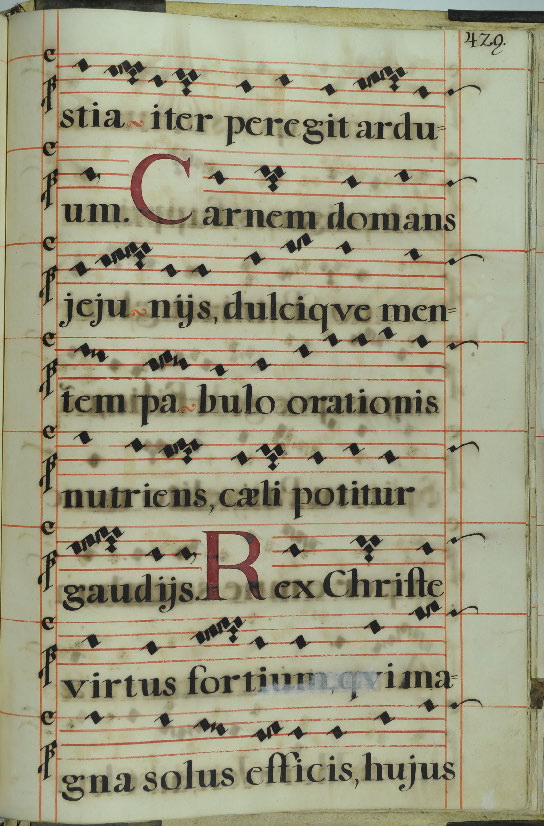 429.
stia iter peregit ardu=
um. Carnem domans
jeju nijs, dulciqve men=
tem pa bulo orationis
nutriens, cæli potitur
gaudijs. Rex Christe
virtus fortium, qvi ma=
gna solus efficis, hujus